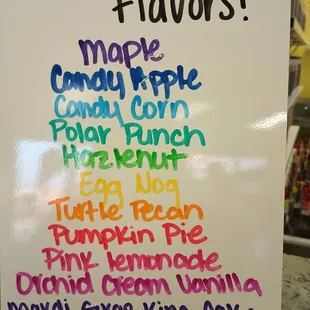 Flavors!
Maple
Candy Apple
Candy Corn
Polar Punch
Hazlenut
Egg Nog
Turtle Pecan
Pumpkin Pie
Pink lemonade
Orchid Cream Vanilla
Mardi Gras King